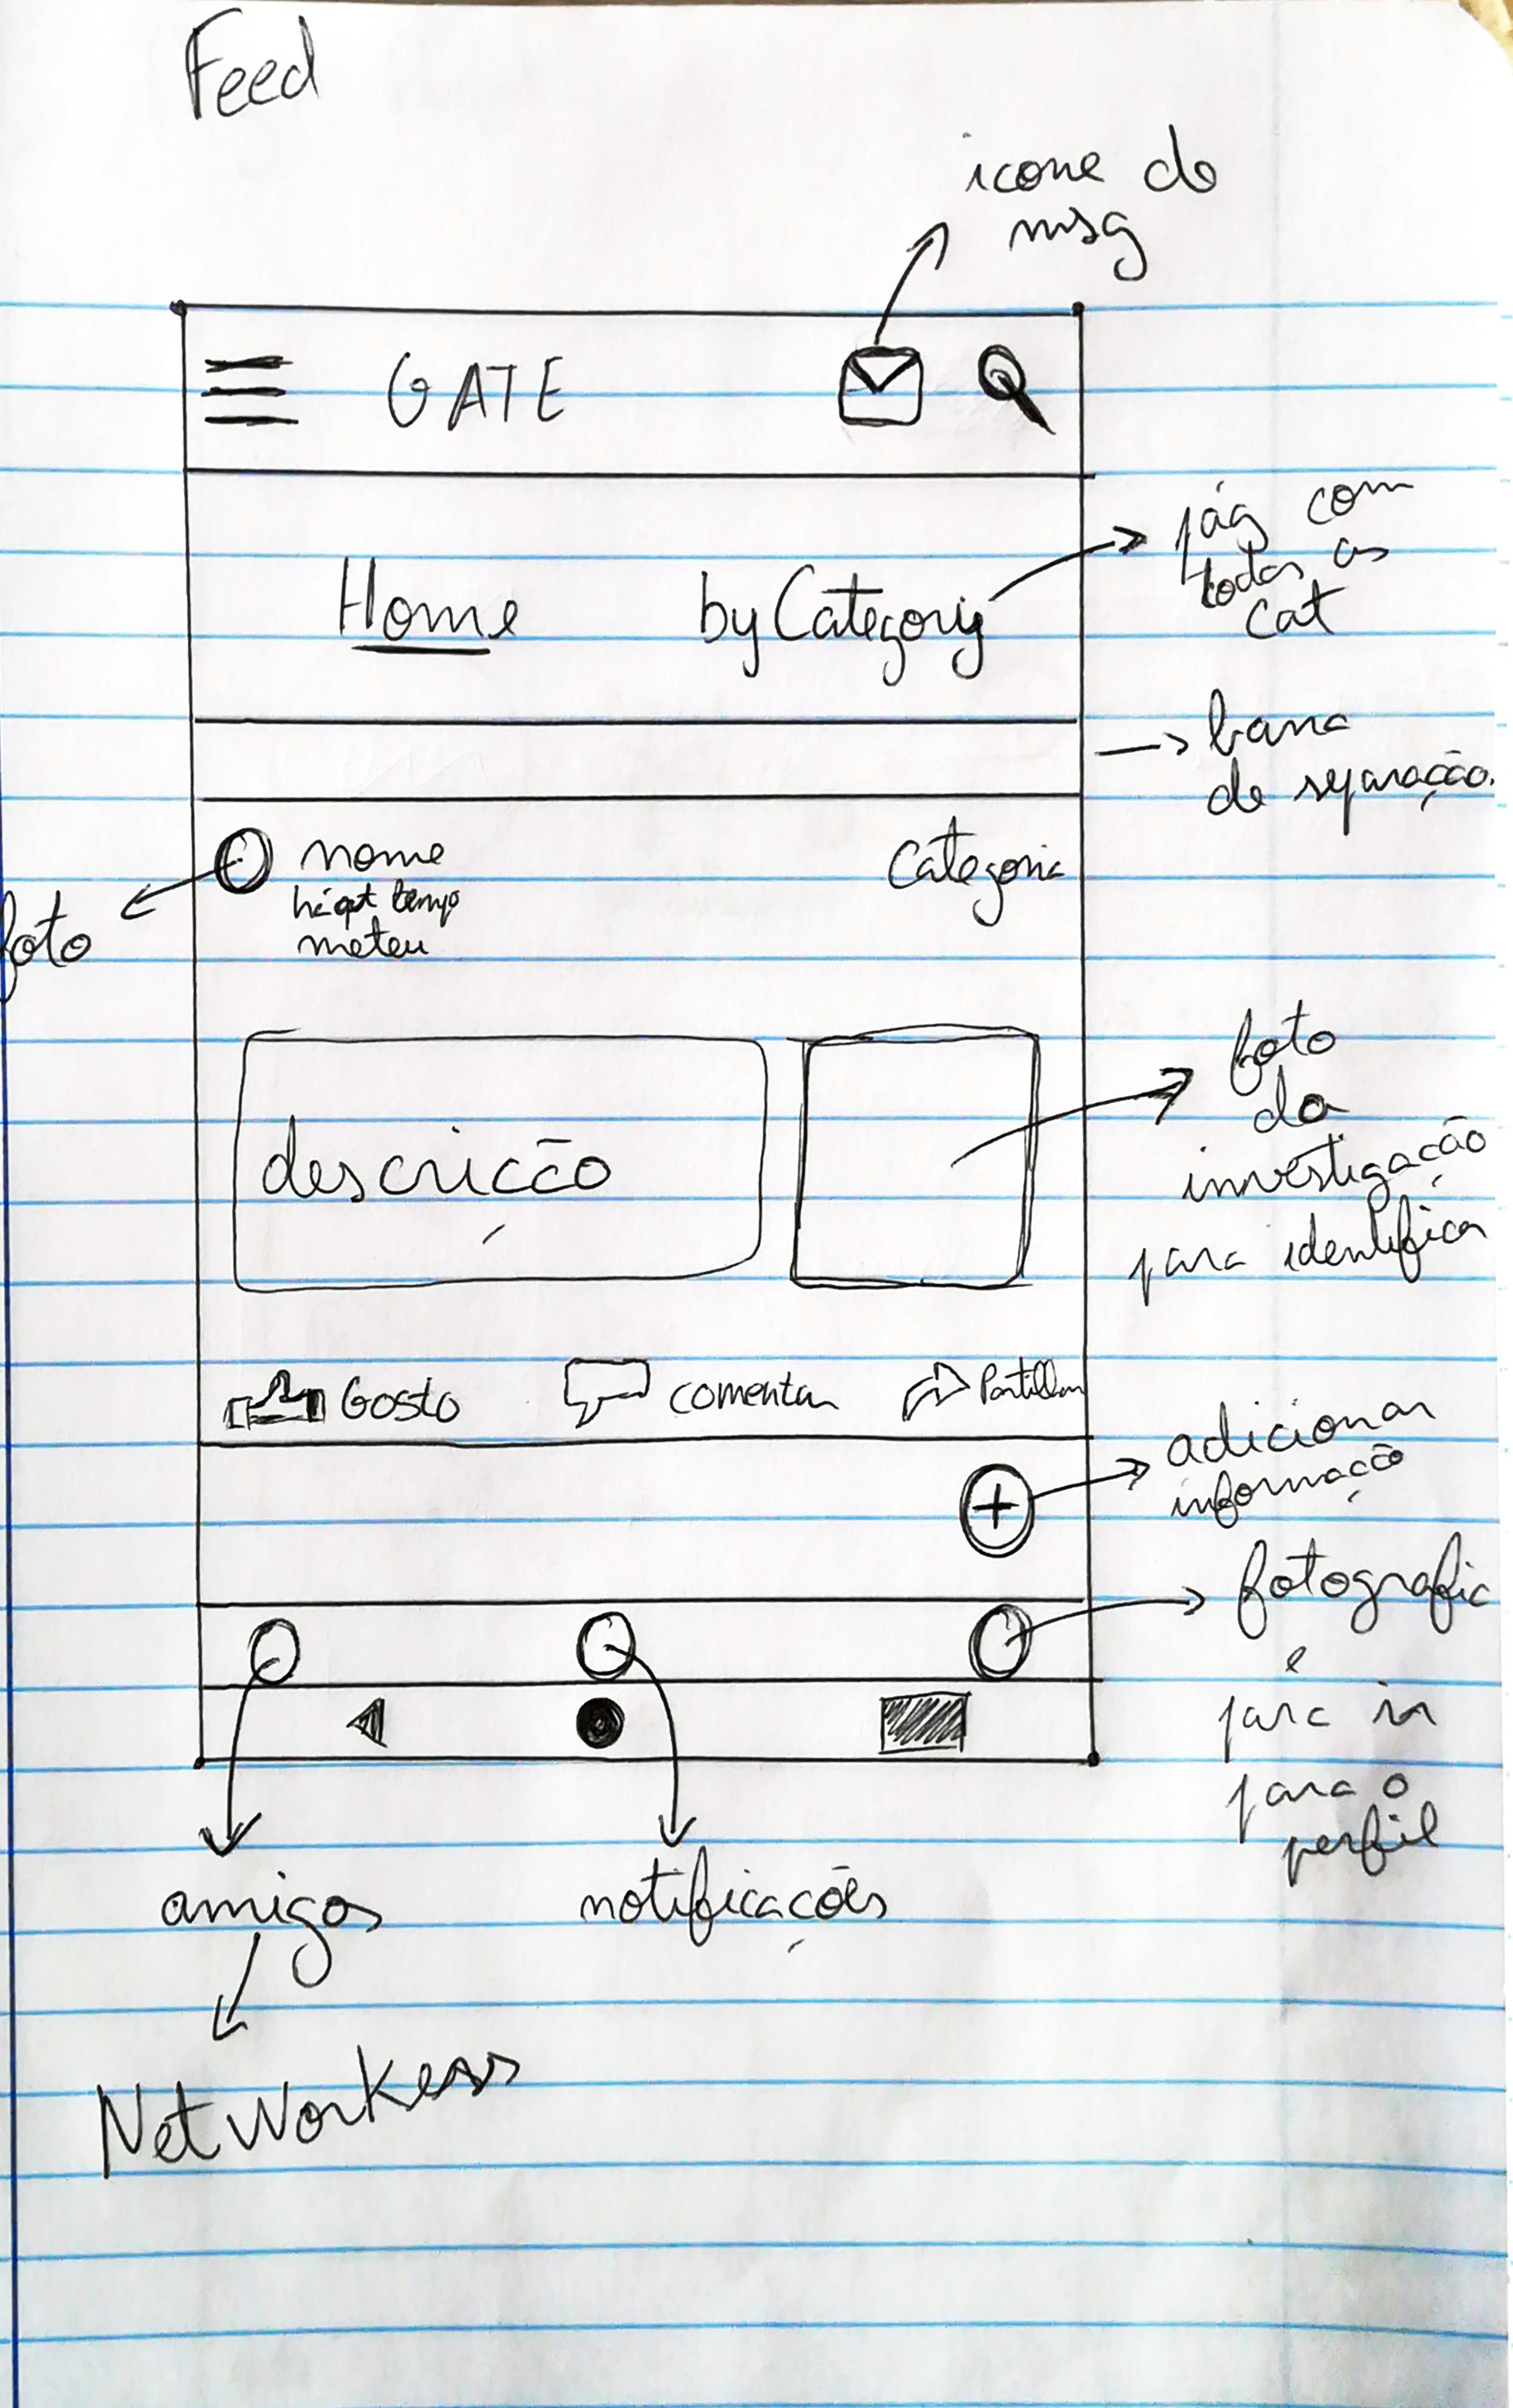 Feed
icone de
msg
GATE
Home
by Category
pág com
todas as
cat
barra
de separação.
nome
há qt tempo
meteu
Categoria
foto
descrição
foto
da
investigação
para identificar
Gosto
comentar
Partilhar
adicionar
informação
fotografia
é
para ir
para o
perfil
amigos
notificações
NetWorkers